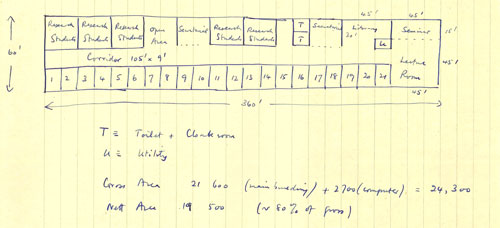 45' 45'
Research Students Research Students Research Students Open Area Secretarial Research Students Research Students T Secretarial Library 20' Seminar 15'
T U
60' Corridor 105' x 9' Lecture Room 45'
1 2 3 4 5 6 7 8 9 10 11 12 13 14 15 16 17 18 19 20 21
45'
360'
T ≡ Toilet + Cloakroom
U ≡ Utility
Gross Area 21 600 (main building) + 2700 (computer) = 24,300
Nett Area 19 500 (~ 80% of gross)